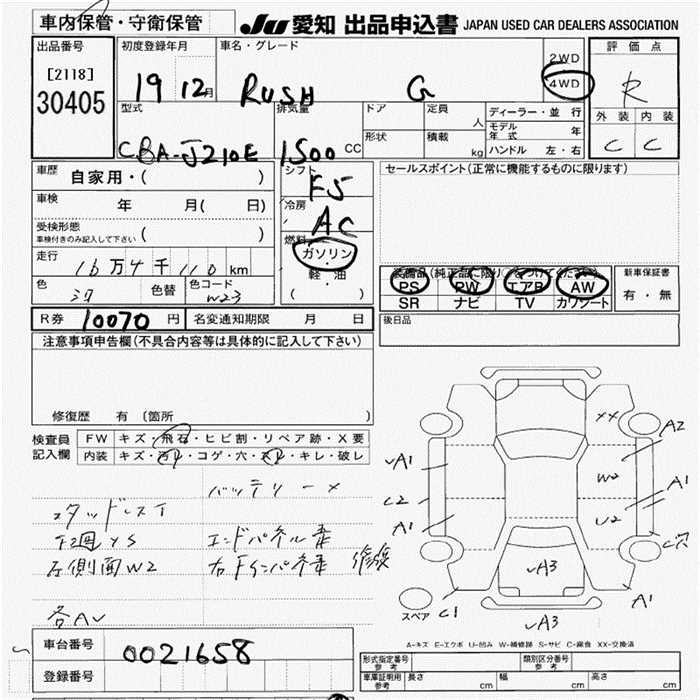 車内保管・守衛保管
JU 愛知 出品申込書 JAPAN USED CAR DEALERS ASSOCIATION
出品番号
[2118]
30405
初度登録年月
19 12月
車名・グレード
RUSH G
2WD
4WD
評価点
R
外装 内装
C C
型式
CBA-J210E
排気量
1500 CC
ドア
定員
人
形状
積載
kg
ディーラー・並行
モデル年式 年
ハンドル 左・右
車歴
自家用・( )
車検
年 月( 日)
受検形態
車検付きのみ記入して下さい ( )
走行
16万4千110km
色
色替
色コード
W23
シフト
F5
冷房
AC
燃料
ガソリン
軽・油
( )
セールスポイント(正常に機能するものに限ります)
装備品(純正品に限り○をつけてください)
PS PW エアB AW
SR ナビ TV カワシート
新車保証書
有・無
R券 10070円
名変通知期限 月 日
後日品
注意事項申告欄(不具合内容等は具体的に記入して下さい)
修復歴 有(箇所 )
検査員記入欄
FW キズ・飛石・ヒビ割・リペア跡・X要
内装 キズ・汚れ・コゲ・穴・スレ・キレ・破レ
バッテリー×
スタッドレスT
下廻YS
エンドパネル
左側面W2
右Fインパネ 修復
各AU
XX
A2
A1
W2
A1
C2
A1
U2
C穴
A3
A1
スペア
C1
A3
A-キズ E-エクボ U-凹み W-補修跡 S-サビ C-腐食 XX-交換済
車台番号
0021658
登録番号
形式指定番号 参考
類別区分番号 参考
車庫証明用 参考
長さ cm
幅 cm
高さ cm